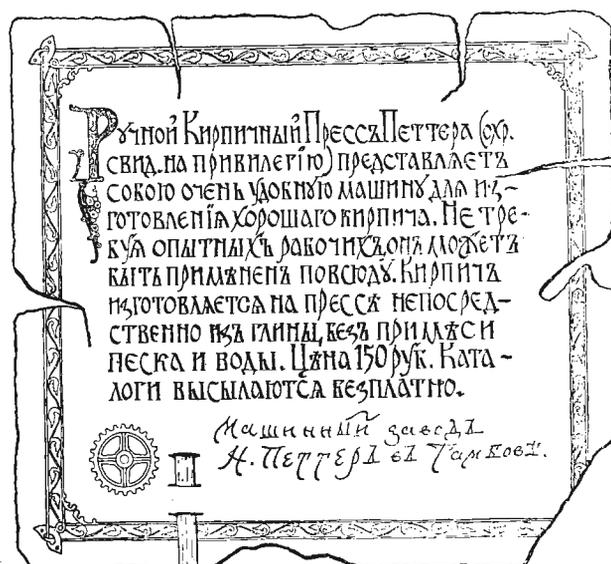 Ручной Кирпичный Прессъ Петтера (охр.
свид. на привилегію) представляетъ
собою очень удобную машину для из-
готовленія хорошаго кирпича. Не тре-
буя опытныхъ рабочихъ, онъ можетъ
быть примѣненъ повсюду. Кирпичъ
изготовляется на прессѣ непосред-
ственно изъ глины, безъ примѣси
песка и воды. Цѣна 150 руб. Ката-
логи высылаются безплатно.
Машинный заводъ
Н. Петтеръ въ Тамбовѣ.